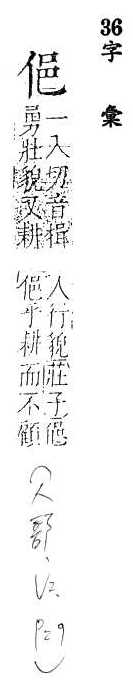 36字 彙
俋
一入切音揖
勇壯貌又耕
人行貌莊子俋
俋乎耕而不顧
(人部、P29)